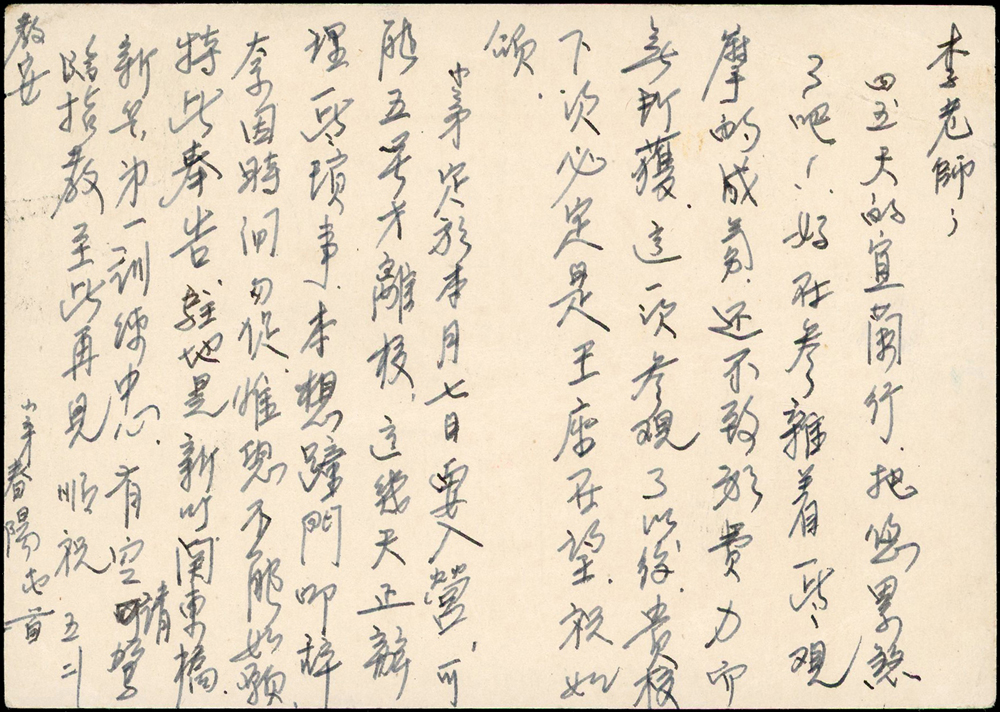 李老師：
四五天的宜蘭行．把您累煞
了吧！．好在參雜着一些觀
摩的成芬．还不致於費力而
無所獲．這一次參观了以後．貴校
下次必定是王座在望．祝如
頌．
小弟定於本月七日要入營，可
能五号才離校．這幾天正辦
理一些瑣事．本想蹱門叩辞
奈因時间匆促．惟恐不能如願
特此奉告．駐地是新竹関東橋．
新兵第一訓练中心．有空請駕
臨指教 至此再見 順祝 五 二
教安
小弟春陽 首